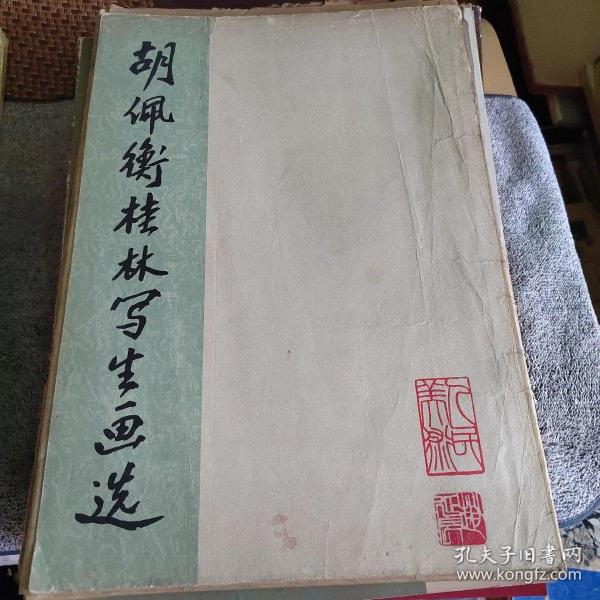 胡佩衡桂林写生画选
孔夫子旧书网
www.kongfz.com